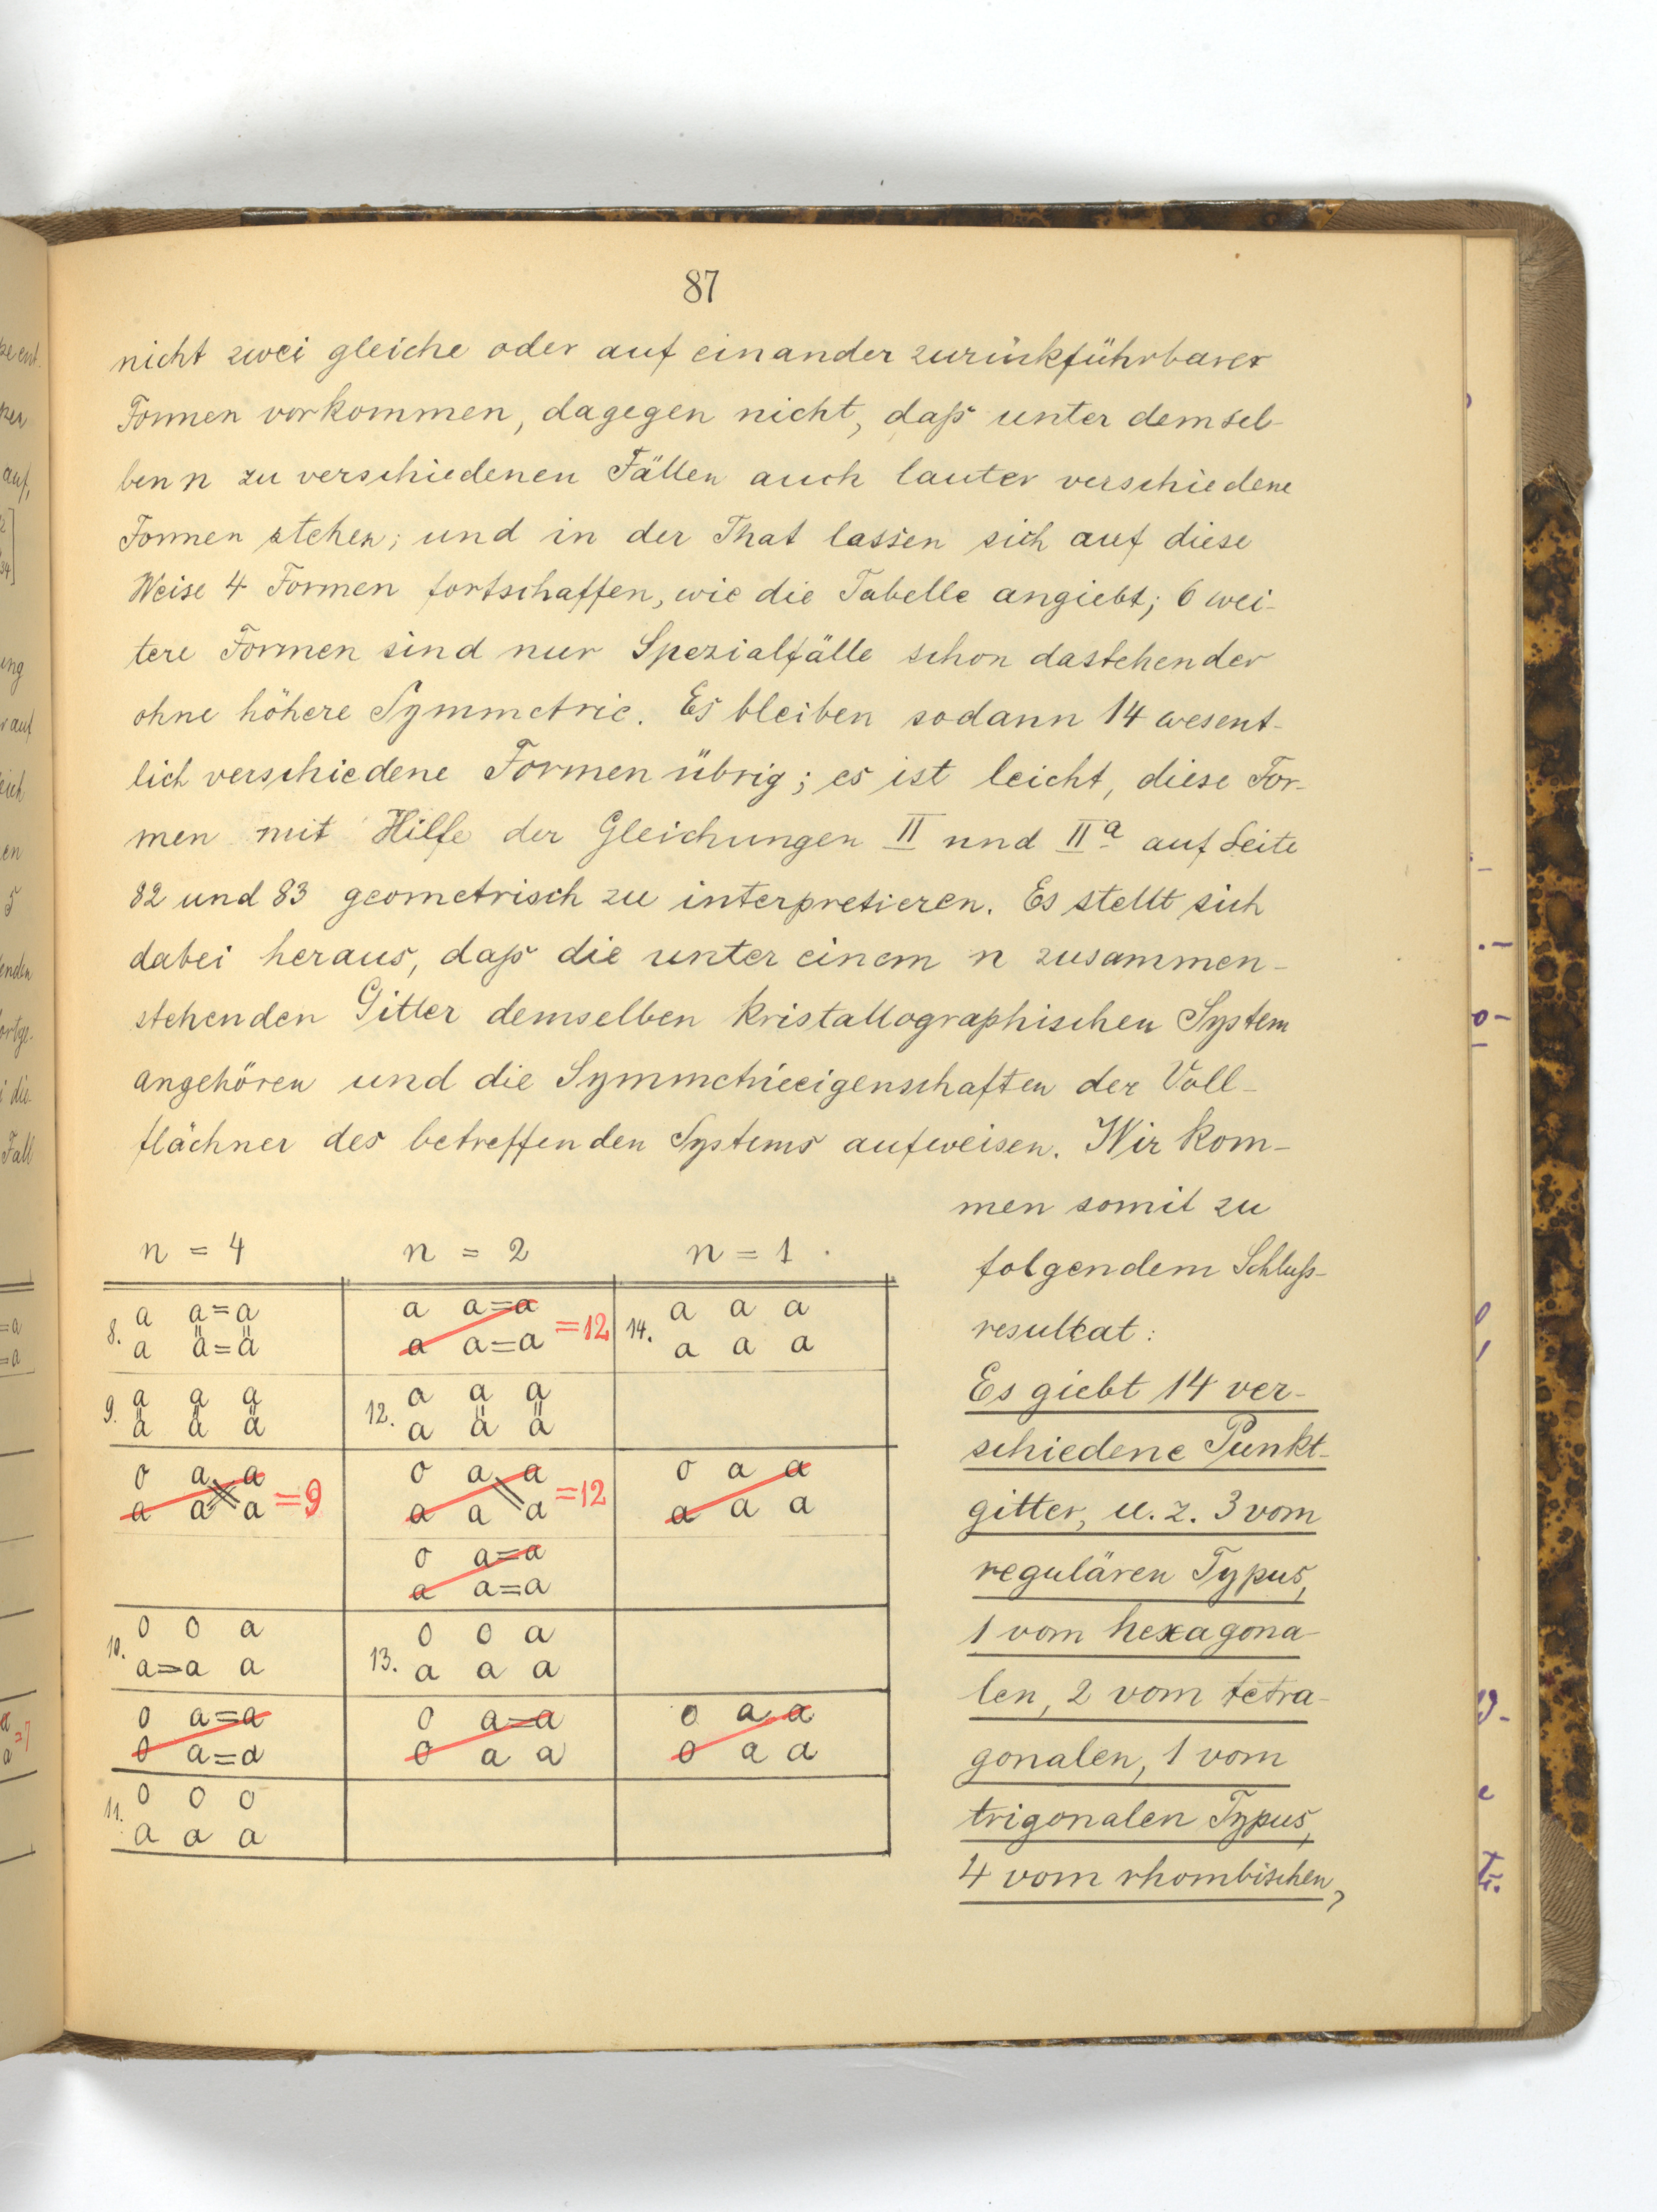 87
nicht zwei gleiche oder auf einander zurückführbarer
Formen vorkommen, dagegen nicht, daß unter demsel-
ben n zu verschiedenen Fällen auch lauter verschiedene
Formen stehen; und in der That lassen sich auf diese
Weise 4 Formen fortschaffen, wie die Tabelle angiebt; 6 wei-
tere Formen sind nur Spezialfälle schon dastehender
ohne höhere Symmetrie. Es bleiben sodann 14 wesent-
lich verschiedene Formen übrig; es ist leicht, diese For-
men mit Hilfe der Gleichungen II und IIa auf Seite
82 und 83 geometrisch zu interpretieren. Es stellt sich
dabei heraus, daß die unter einem n zusammen-
stehenden Gitter demselben kristallographischen System
angehören und die Symmetrieeigenschaften der Voll-
flächner des betreffenden Systems aufweisen. Wir kom-
men somit zu
folgendem Schluß-
resultat:
Es giebt 14 ver-
schiedene Punkt-
gitter, u. z. 3 vom
regulären Typus,
1 vom hexagona-
len, 2 vom tetra-
gonalen, 1 vom
trigonalen Typus,
4 vom rhombischen,
n = 4 n = 2 n = 1
8. a a=a
a ä=ä
a a=a
a a=a =12
14. a a a
a a a
9. a a a
ä ä ä
12. a a a
a ä ä
o a a
a a a =9
o a a
a a a =12
o a a
a a a
o a=a
a a=a
10. o o a
a=a a
13. o o a
a a a
o a=a
o a=a
o a=a
o a a
o a a
o a a
11. o o o
a a a